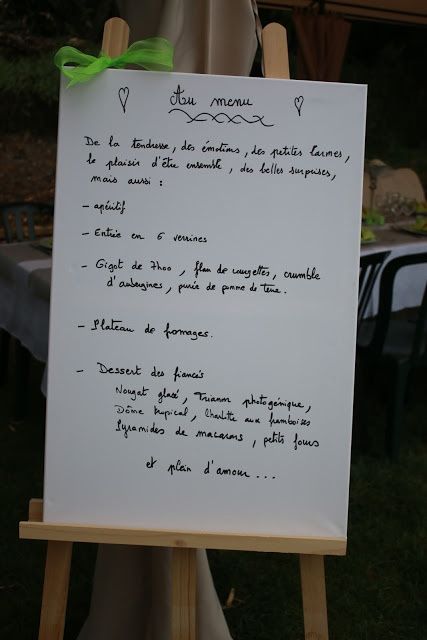 Au menu
De la tendresse, des émotions, des petites larmes,
le plaisir d'être ensemble, des belles surprises,
mais aussi :
- apéritif
- Entrée en 6 verrines
- Gigot de 7h00, flan de courgettes, crumble
d'aubergines, purée de pomme de terre.
- Plateau de fromages.
- Dessert des fiancés
Nougat glacé, Trianon photogénique,
Dôme tropical, Charlotte aux framboises
Pyramides de macarons, petits fours
et plein d'amour ...